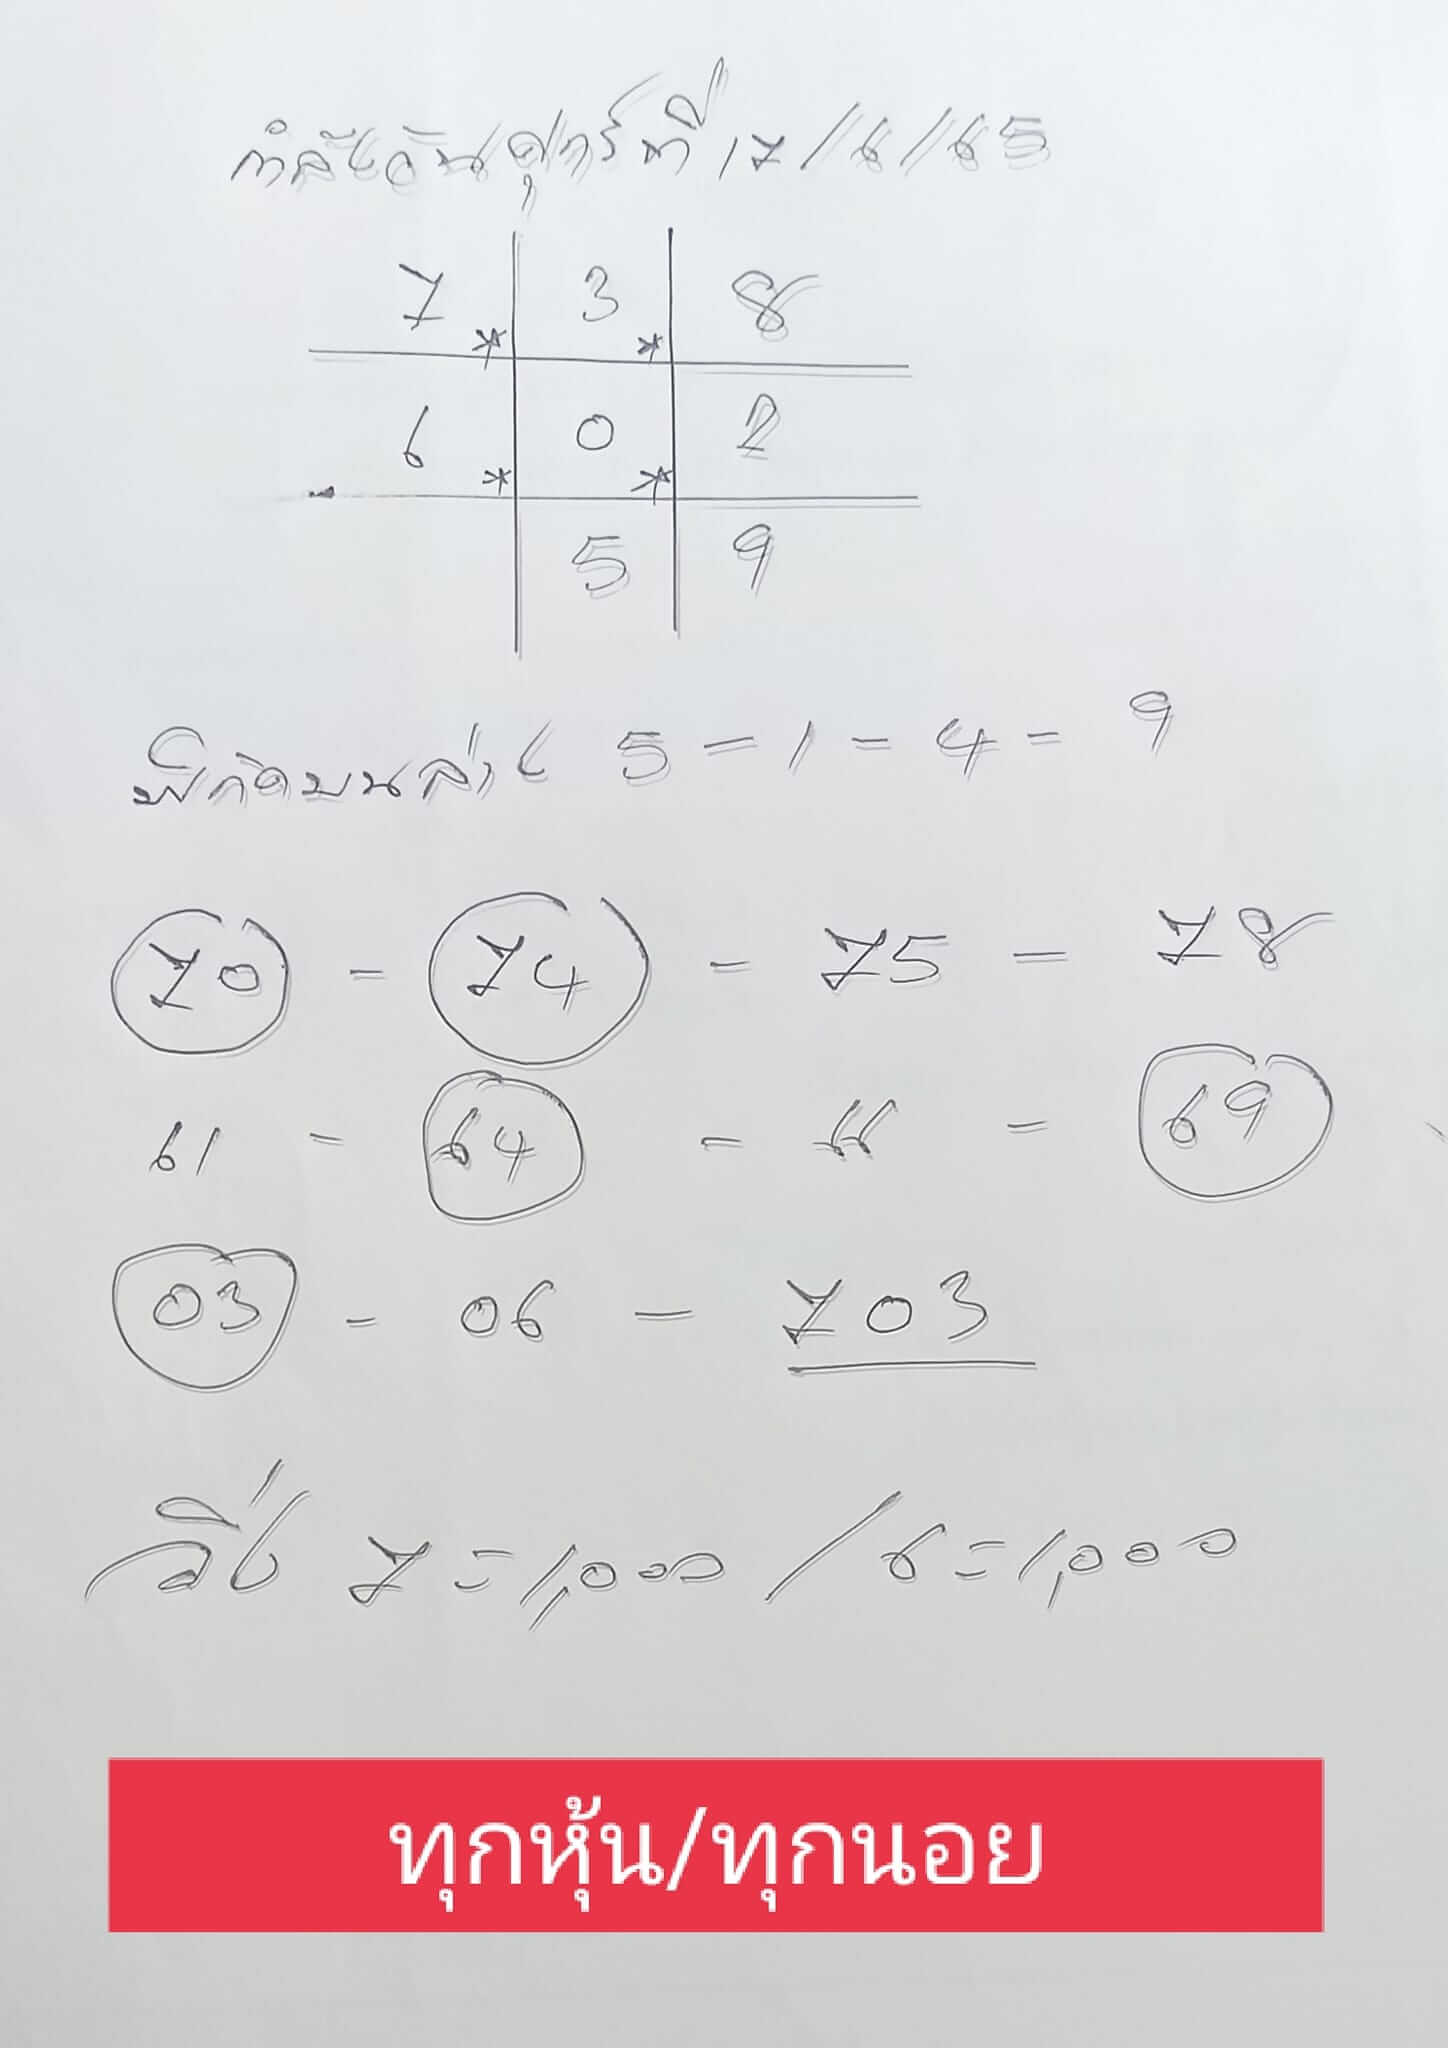 กำลังวันศุกร์ที่ 17/6/65
7 3 8
* *
6 0 2
* *
5 9
พิกัดบนล่าง 5 - 1 - 4 - 9
70 - 74 - 75 - 78
61 - 64 - 66 - 69
03 - 06 - 703
วิ่ง 7 = 1,000 / 6 = 1,000
ทุกหุ้น/ทุกนอย